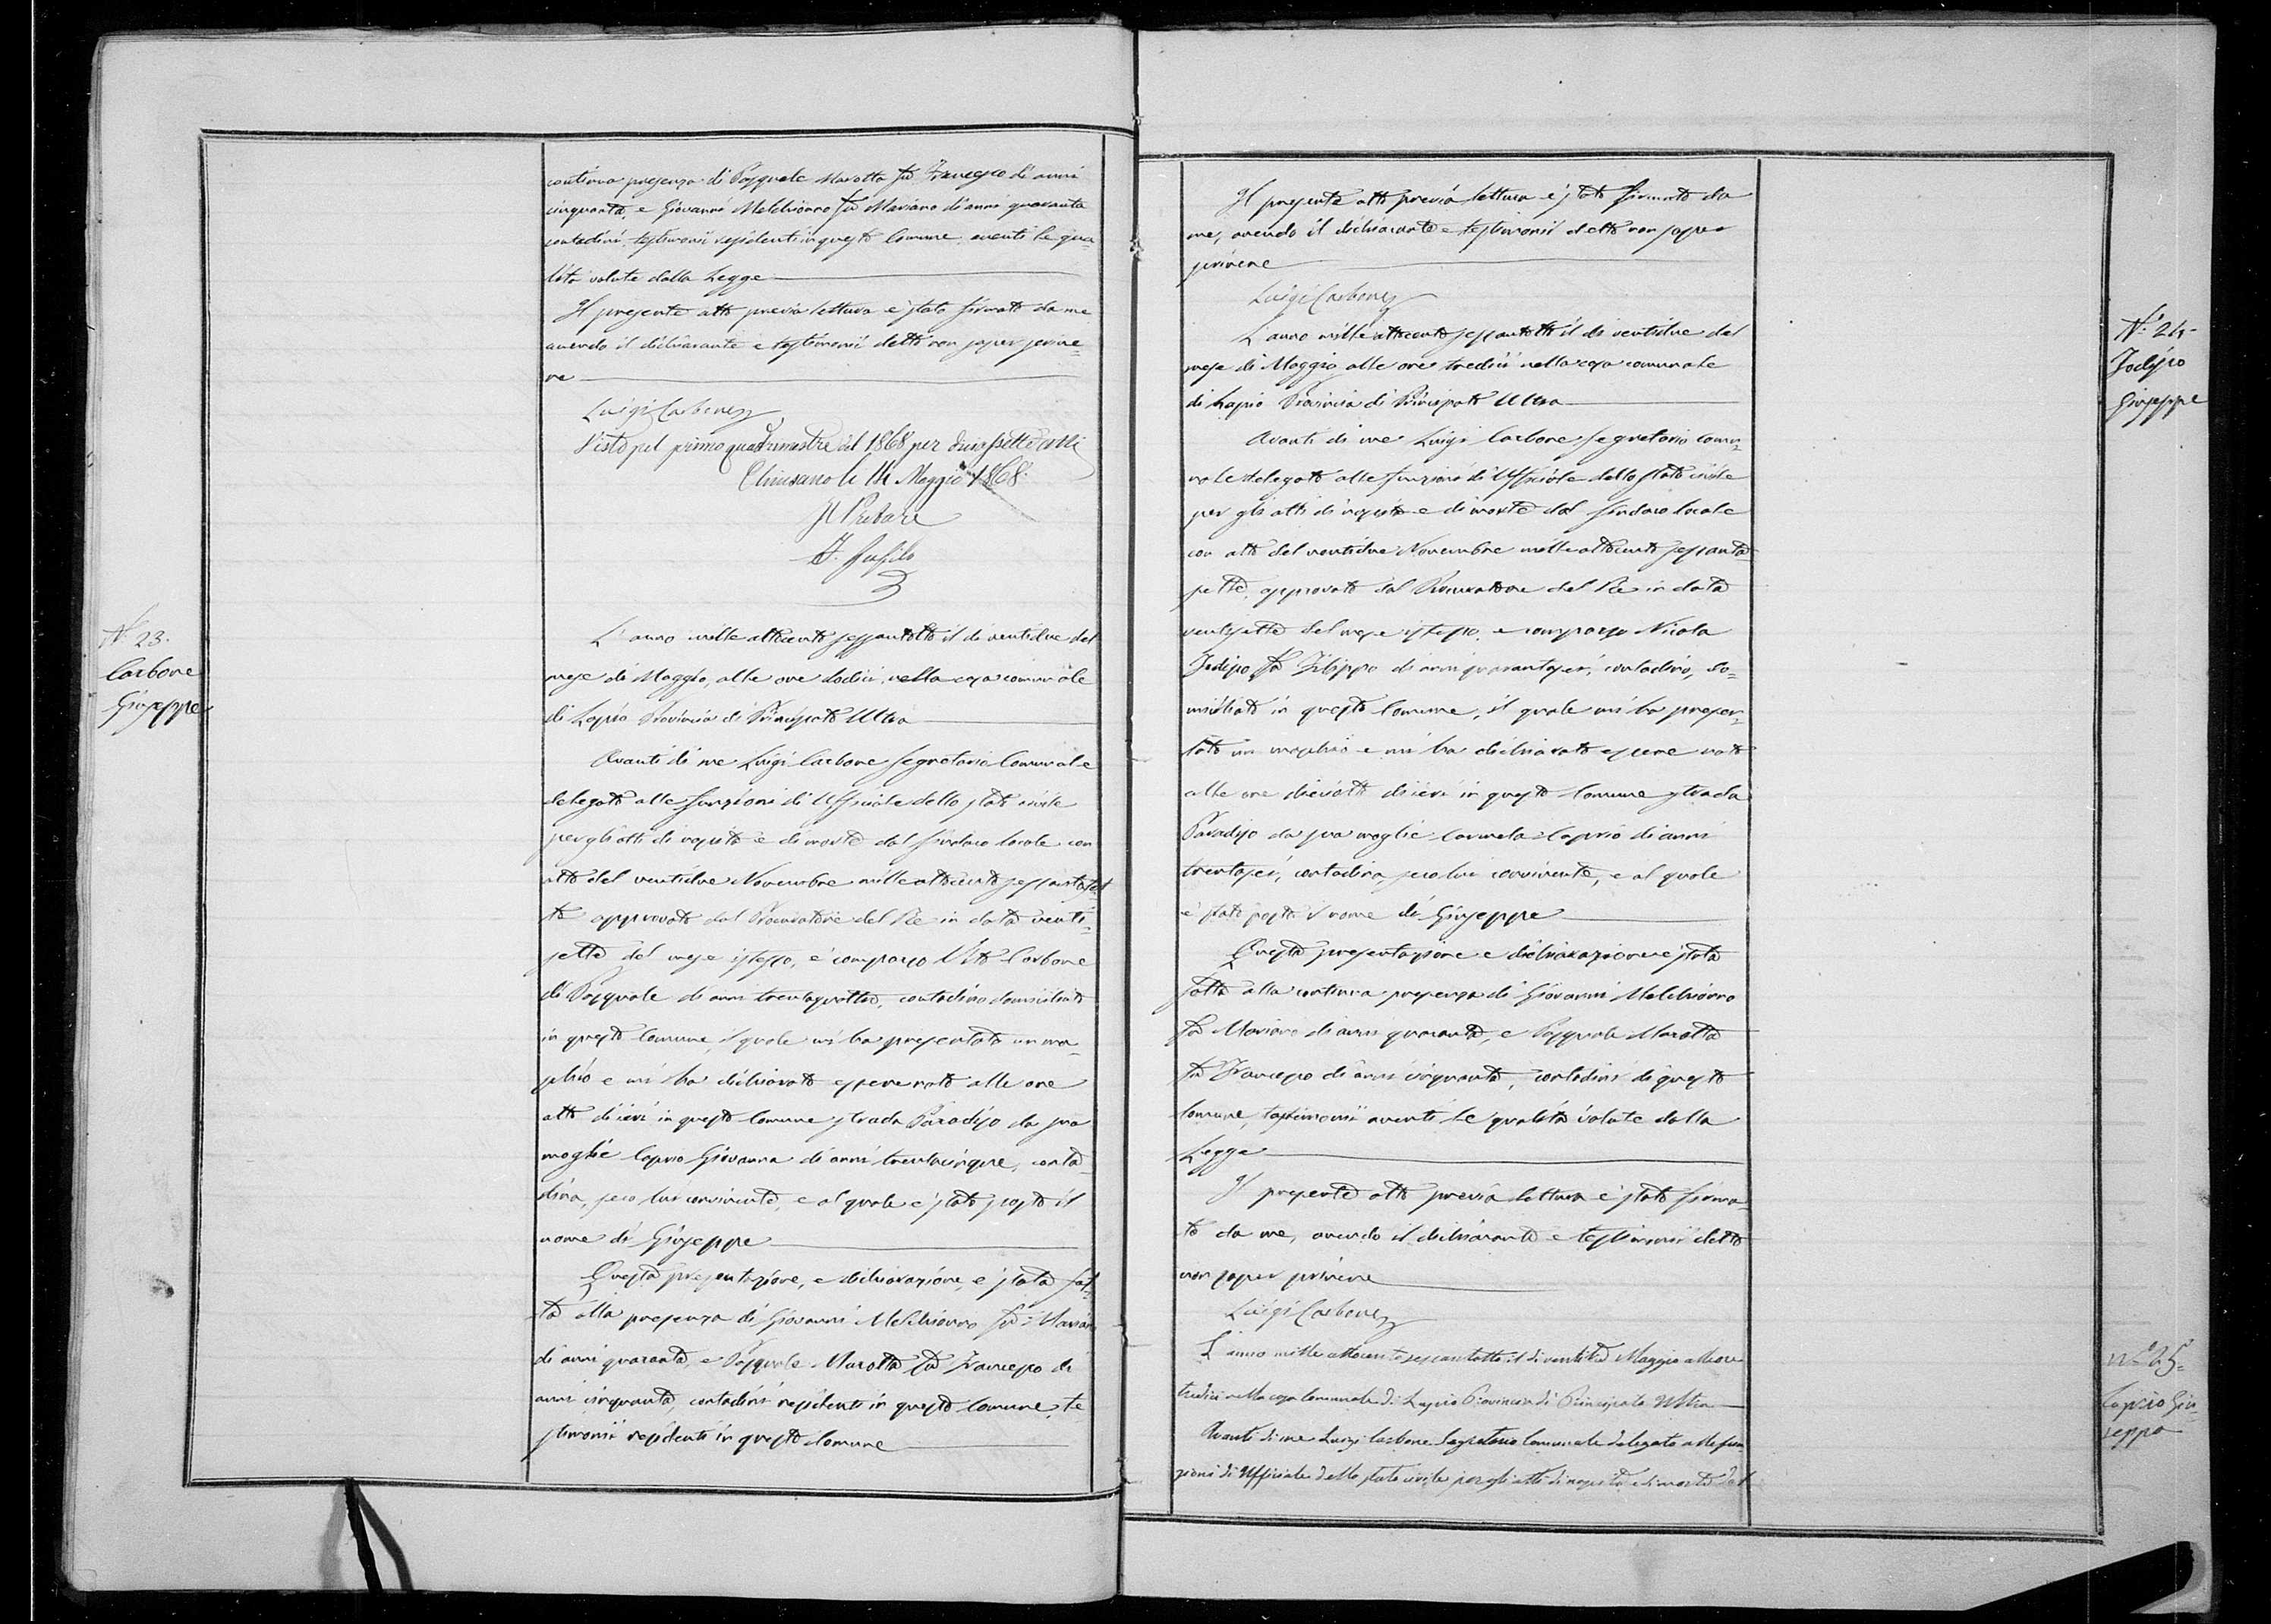 continua presenza di Pasquale Marotta fu Francesco di anni
cinquanta, e Giovanni Melchionno fu Mariano di anni quaranta
contadini, testimonii residenti in questo Comune, aventi le qua-
lità volute dalla Legge
Il presente atto previa lettura è stato firmato da me
avendo il dichiarante e testimonii detto non saper scrive-
re
Luigi Carbone
Visto pel primo quadrimestre del 1868 per atti
Chiusano li 14 Maggio 1868
Il Pretore
N.° 23.
Carbone
Giuseppe
L'anno mille ottocento sessantotto il dì ventidue del
mese di Maggio, alle ore dodici, nella casa comunale
di Lapio Provincia di Principato Ultra
Avanti di me Luigi Carbone Segretario Comunale
delegato alle funzioni di Uffiziale dello stato civile
per gli atti di nascita e di morte dal Sindaco locale con
atto del ventidue Novembre mille ottocento sessantaset-
te approvato dal Procuratore del Re in data venti-
sette del mese istesso, è comparso Vito Carbone
di Pasquale di anni trentaquattro, contadino domiciliato
in questo Comune, il quale mi ha presentato un ma-
schio e mi ha dichiarato essere nato alle ore
otto di ieri in questo Comune strada Paradiso da sua
moglie Caprio Giovanna di anni trentacinque, conta-
dina, seco lui convivente, e al quale è stato posto il
nome di Giuseppe
Questa presentazione, e dichiarazione, è stata fat-
ta alla presenza di Giovanni Melchionno fu Mariano
di anni quaranta, e Pasquale Marotta fu Francesco di
anni cinquanta, contadini residenti in questo Comune, te-
stimonii residenti in questo Comune
Il presente atto previa lettura è stato firmato da
me, avendo il dichiarante e testimonii detto non saper
scrivere
Luigi Carbone
N.° 24
Giuseppe
L'anno mille ottocento sessantotto il dì ventidue del
mese di Maggio alle ore tredici nella casa comunale
di Lapio Provincia di Principato Ultra
Avanti di me Luigi Carbone Segretario Comu-
nale delegato alle funzioni di Uffiziale dello stato civile
per gli atti di nascita e di morte dal Sindaco locale
con atto del ventidue Novembre mille ottocento sessanta-
sette, approvato dal Procuratore del Re in data
ventisette del mese istesso, è comparso Nicola
fu Filippo di anni quarantasei, contadino, do-
miciliato in questo Comune, il quale mi ha presen-
tato un maschio e mi ha dichiarato essere nato
alle ore dieciotto di ieri in questo Comune strada
Paradiso da sua moglie Carmela Caprio di anni
trentasei, contadina, seco lui convivente, e al quale
è stato posto il nome di Giuseppe
Questa presentazione e dichiarazione è stata
fatta alla continua presenza di Giovanni Melchionno
fu Mariano di anni quaranta, e Pasquale Marotta
fu Francesco di anni cinquanta, contadini di questo
Comune, testimonii aventi le qualità volute dalla
Legge
Il presente atto previa lettura è stato firma-
to da me, avendo il dichiarante e testimonii detto
non saper scrivere
Luigi Carbone
N.° 25=
Caprio Giu-
seppe
L'anno mille ottocento sessantotto il dì ventitre Maggio alle ore
tredici nella casa Comunale di Lapio Provincia di Principato Ultra
Avanti di me Luigi Carbone Segretario Comunale delegato alle fun-
zioni di Uffiziale dello stato civile per gli atti di nascita e di morte dal